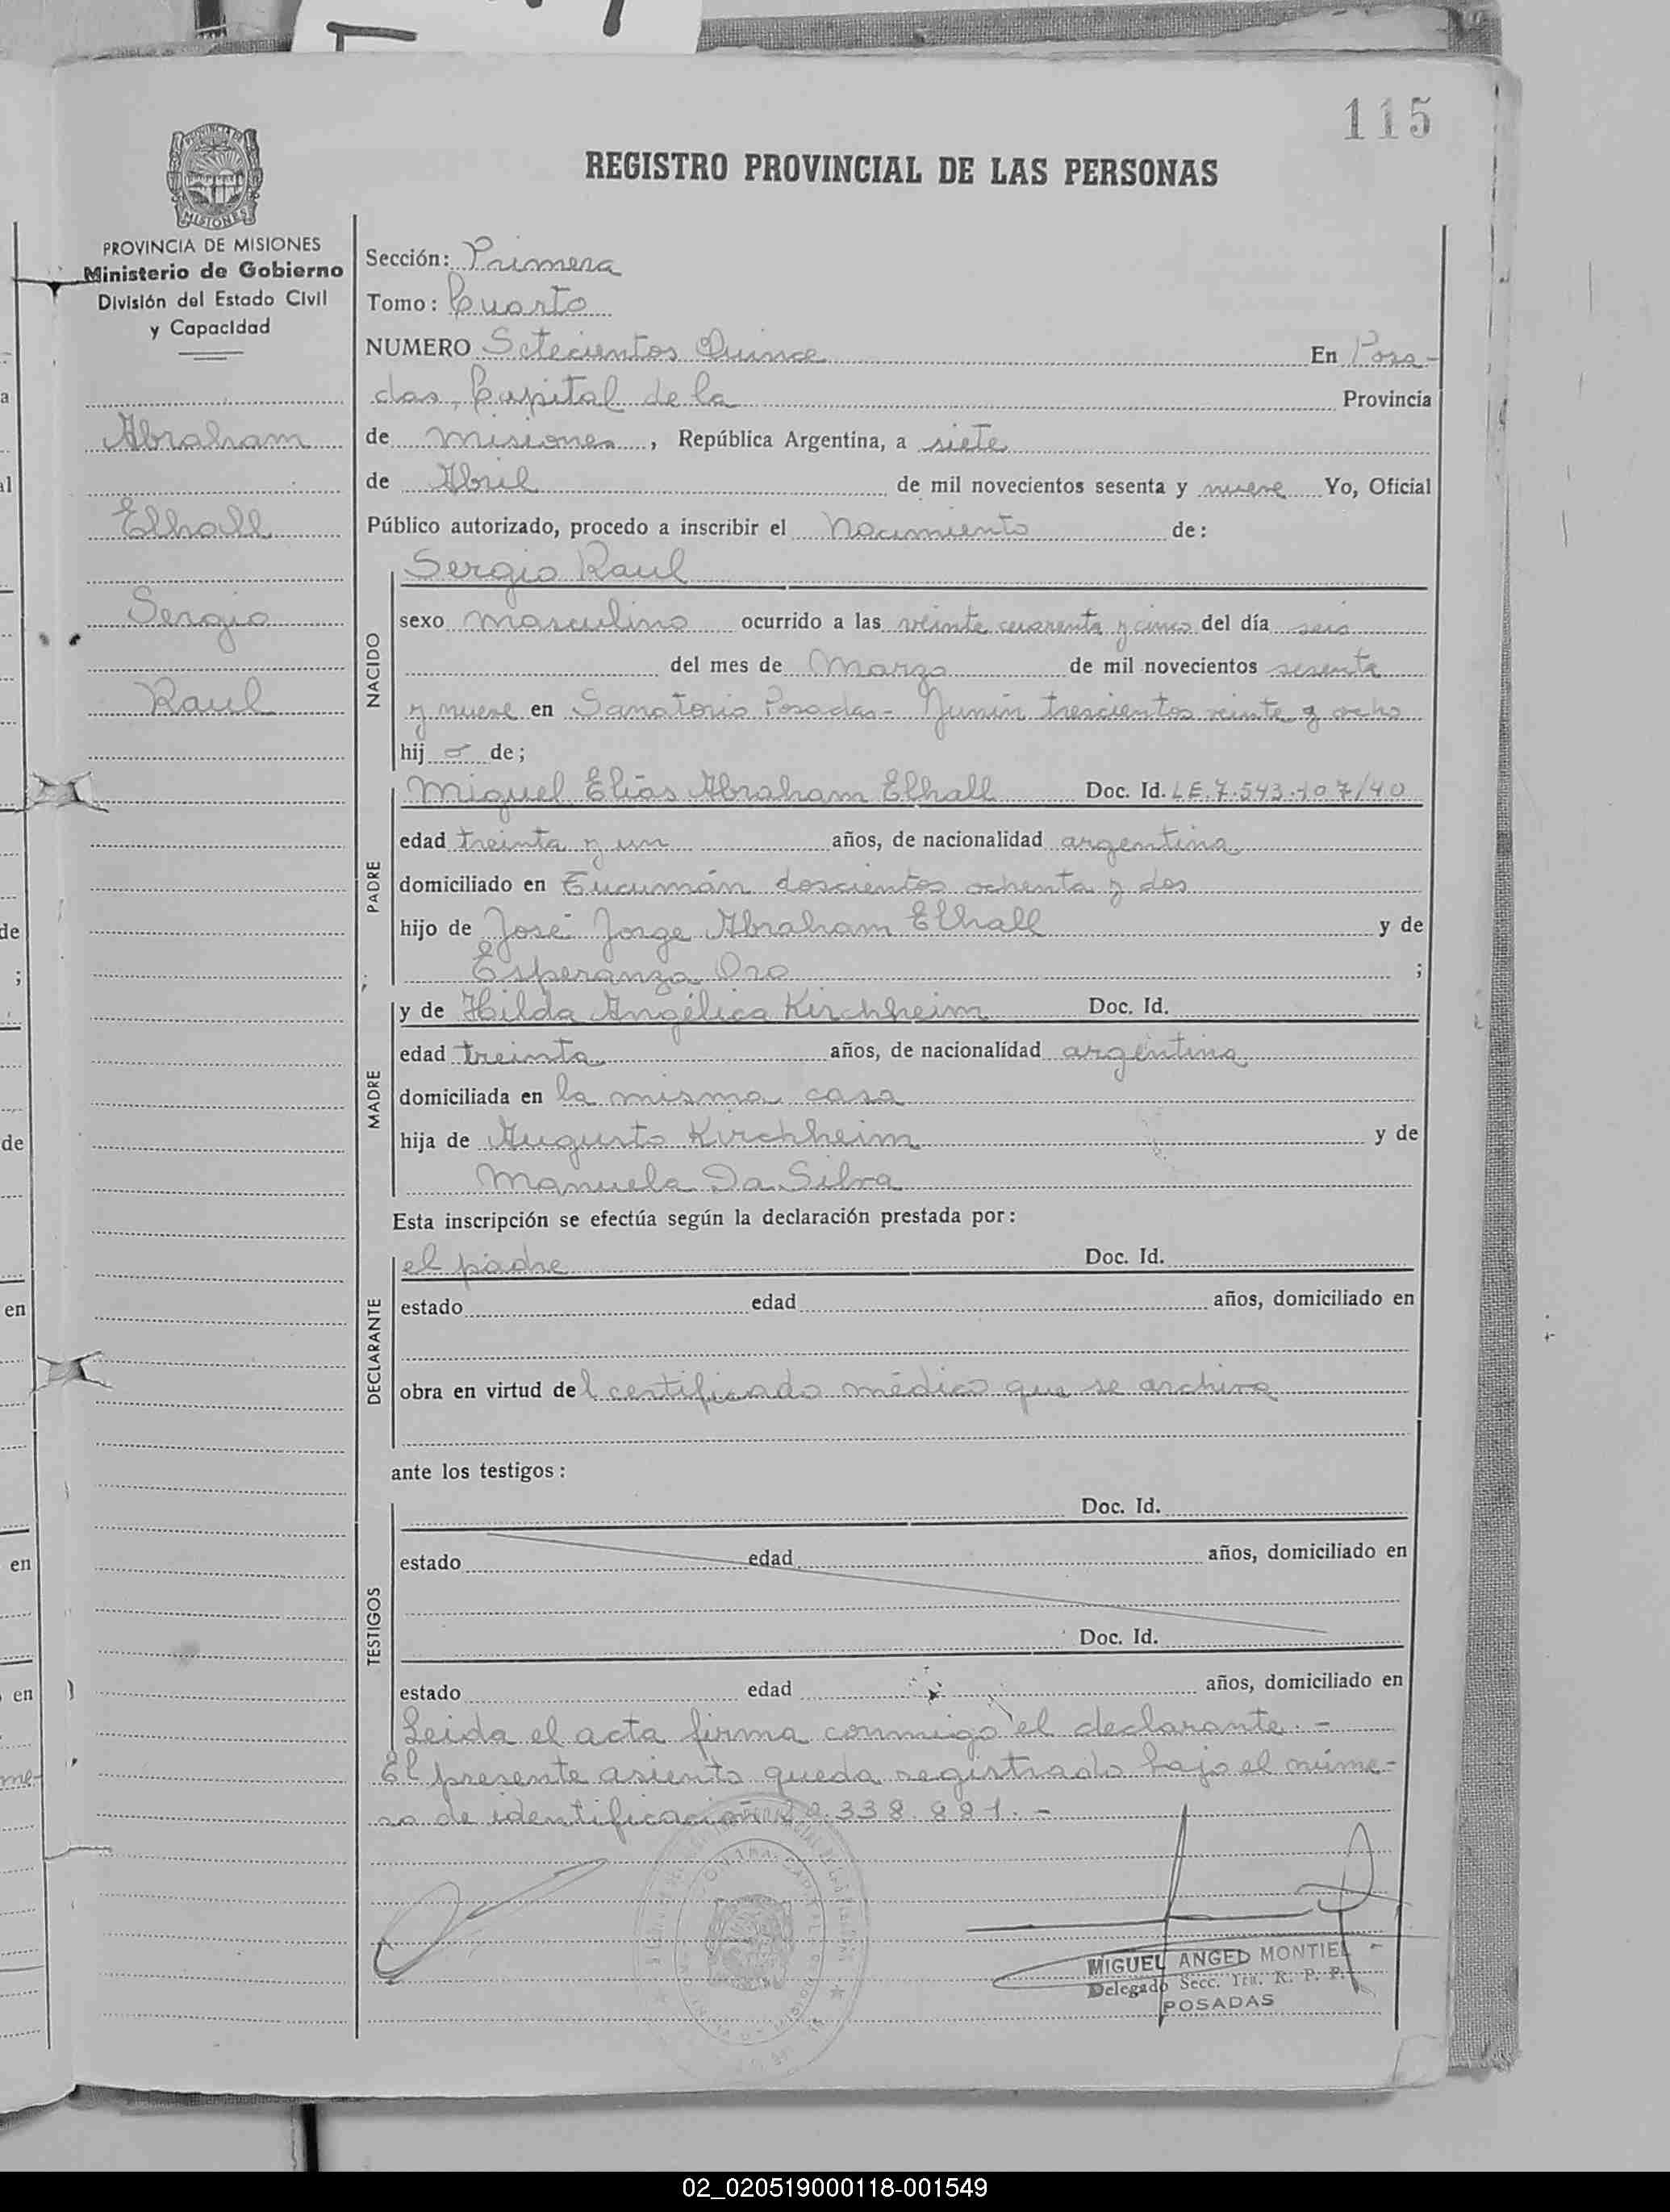 115
REGISTRO PROVINCIAL DE LAS PERSONAS
PROVINCIA DE MISIONES
Ministerio de Gobierno
División del Estado Civil
y Capacidad
Abraham
Elhall
Sergio
Raul
Sección: Primera
Tomo: Cuarto
NUMERO Setecientos Quince En Posa-
das, Capital de la Provincia
de Misiones, República Argentina, a siete
de Abril de mil novecientos sesenta y nueve Yo, Oficial
Público autorizado, procedo a inscribir el Nacimiento de:
NACIDO
Sergio Raul
sexo masculino ocurrido a las veinte cuarenta y cinco del día seis
del mes de Marzo de mil novecientos sesenta
y nueve en Sanatorio Posadas - Junín trescientos veinte y ocho
hijo de;
PADRE
Miguel Elías Abraham Elhall Doc. Id. LE.7.543.107/40
edad treinta y un años, de nacionalidad argentina
domiciliado en Tucumán doscientos ochenta y dos
hijo de José Jorge Abraham Elhall y de
Esperanza Oro ;
MADRE
y de Hilda Angélica Kirchheim Doc. Id.
edad treinta años, de nacionalidad argentina
domiciliada en la misma casa
hija de Augusto Kirchheim y de
Manuela Da Silva
Esta inscripción se efectúa según la declaración prestada por:
DECLARANTE
el padre Doc. Id.
estado edad años, domiciliado en
obra en virtud del certificado médico que se archiva
ante los testigos:
TESTIGOS
Doc. Id.
estado edad años, domiciliado en
Doc. Id.
estado edad años, domiciliado en
Leida el acta firma conmigo el declarante. -
El presente asiento queda registrado bajo el núme-
ro de identificación 338.881. -
MIGUEL ANGEL MONTIEL
Delegado Secc. 1ra. R. P. P.
POSADAS
02_020519000118-001549